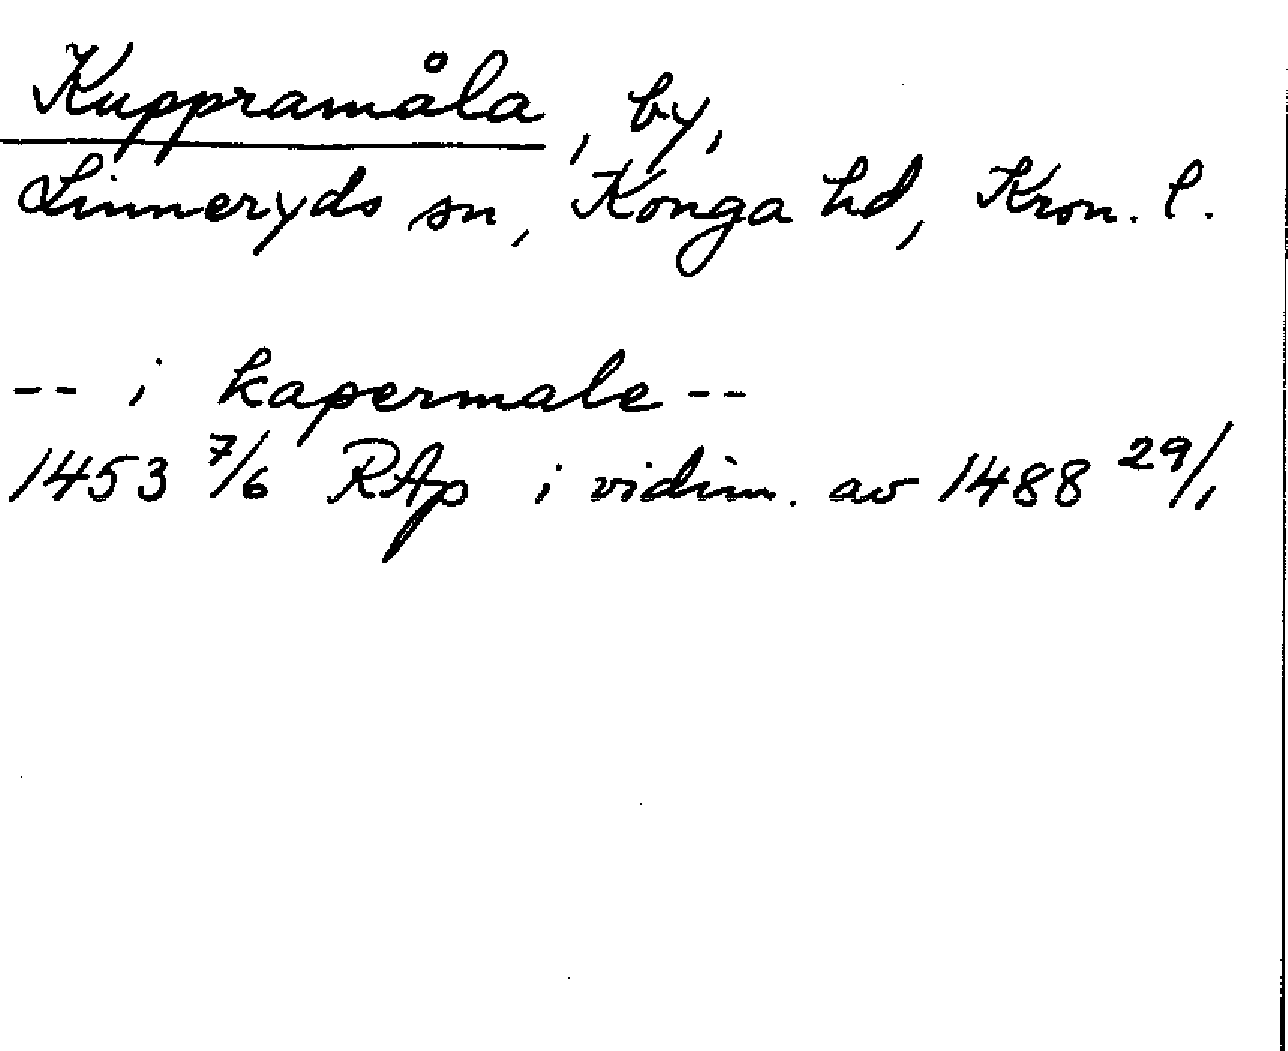 Kuppramåla, by,
Linneryds sn, Konga hd, Kron. l.
-- i kapermale --
1453 7/6 RAp i vidim. av 1488 29/1